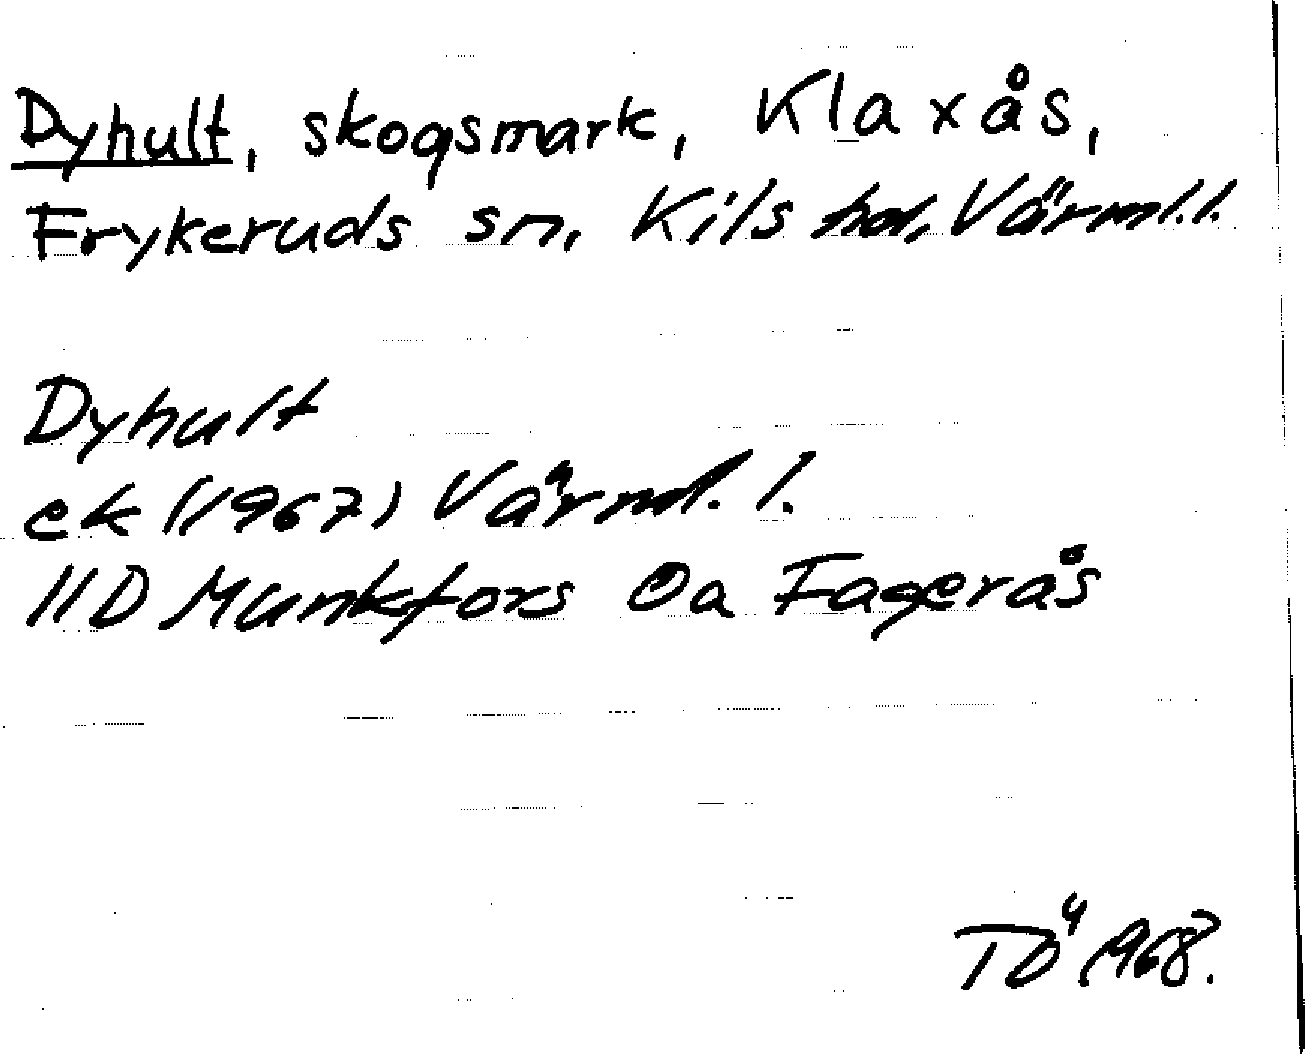 Dyhult, skogsmark, Klaxås,
Frykeruds sn, Kils hd, Värml.l.
Dyhult
ek (1967) Värml. l.
11D Munkfors Öa Fagerås
TÖ 1968.